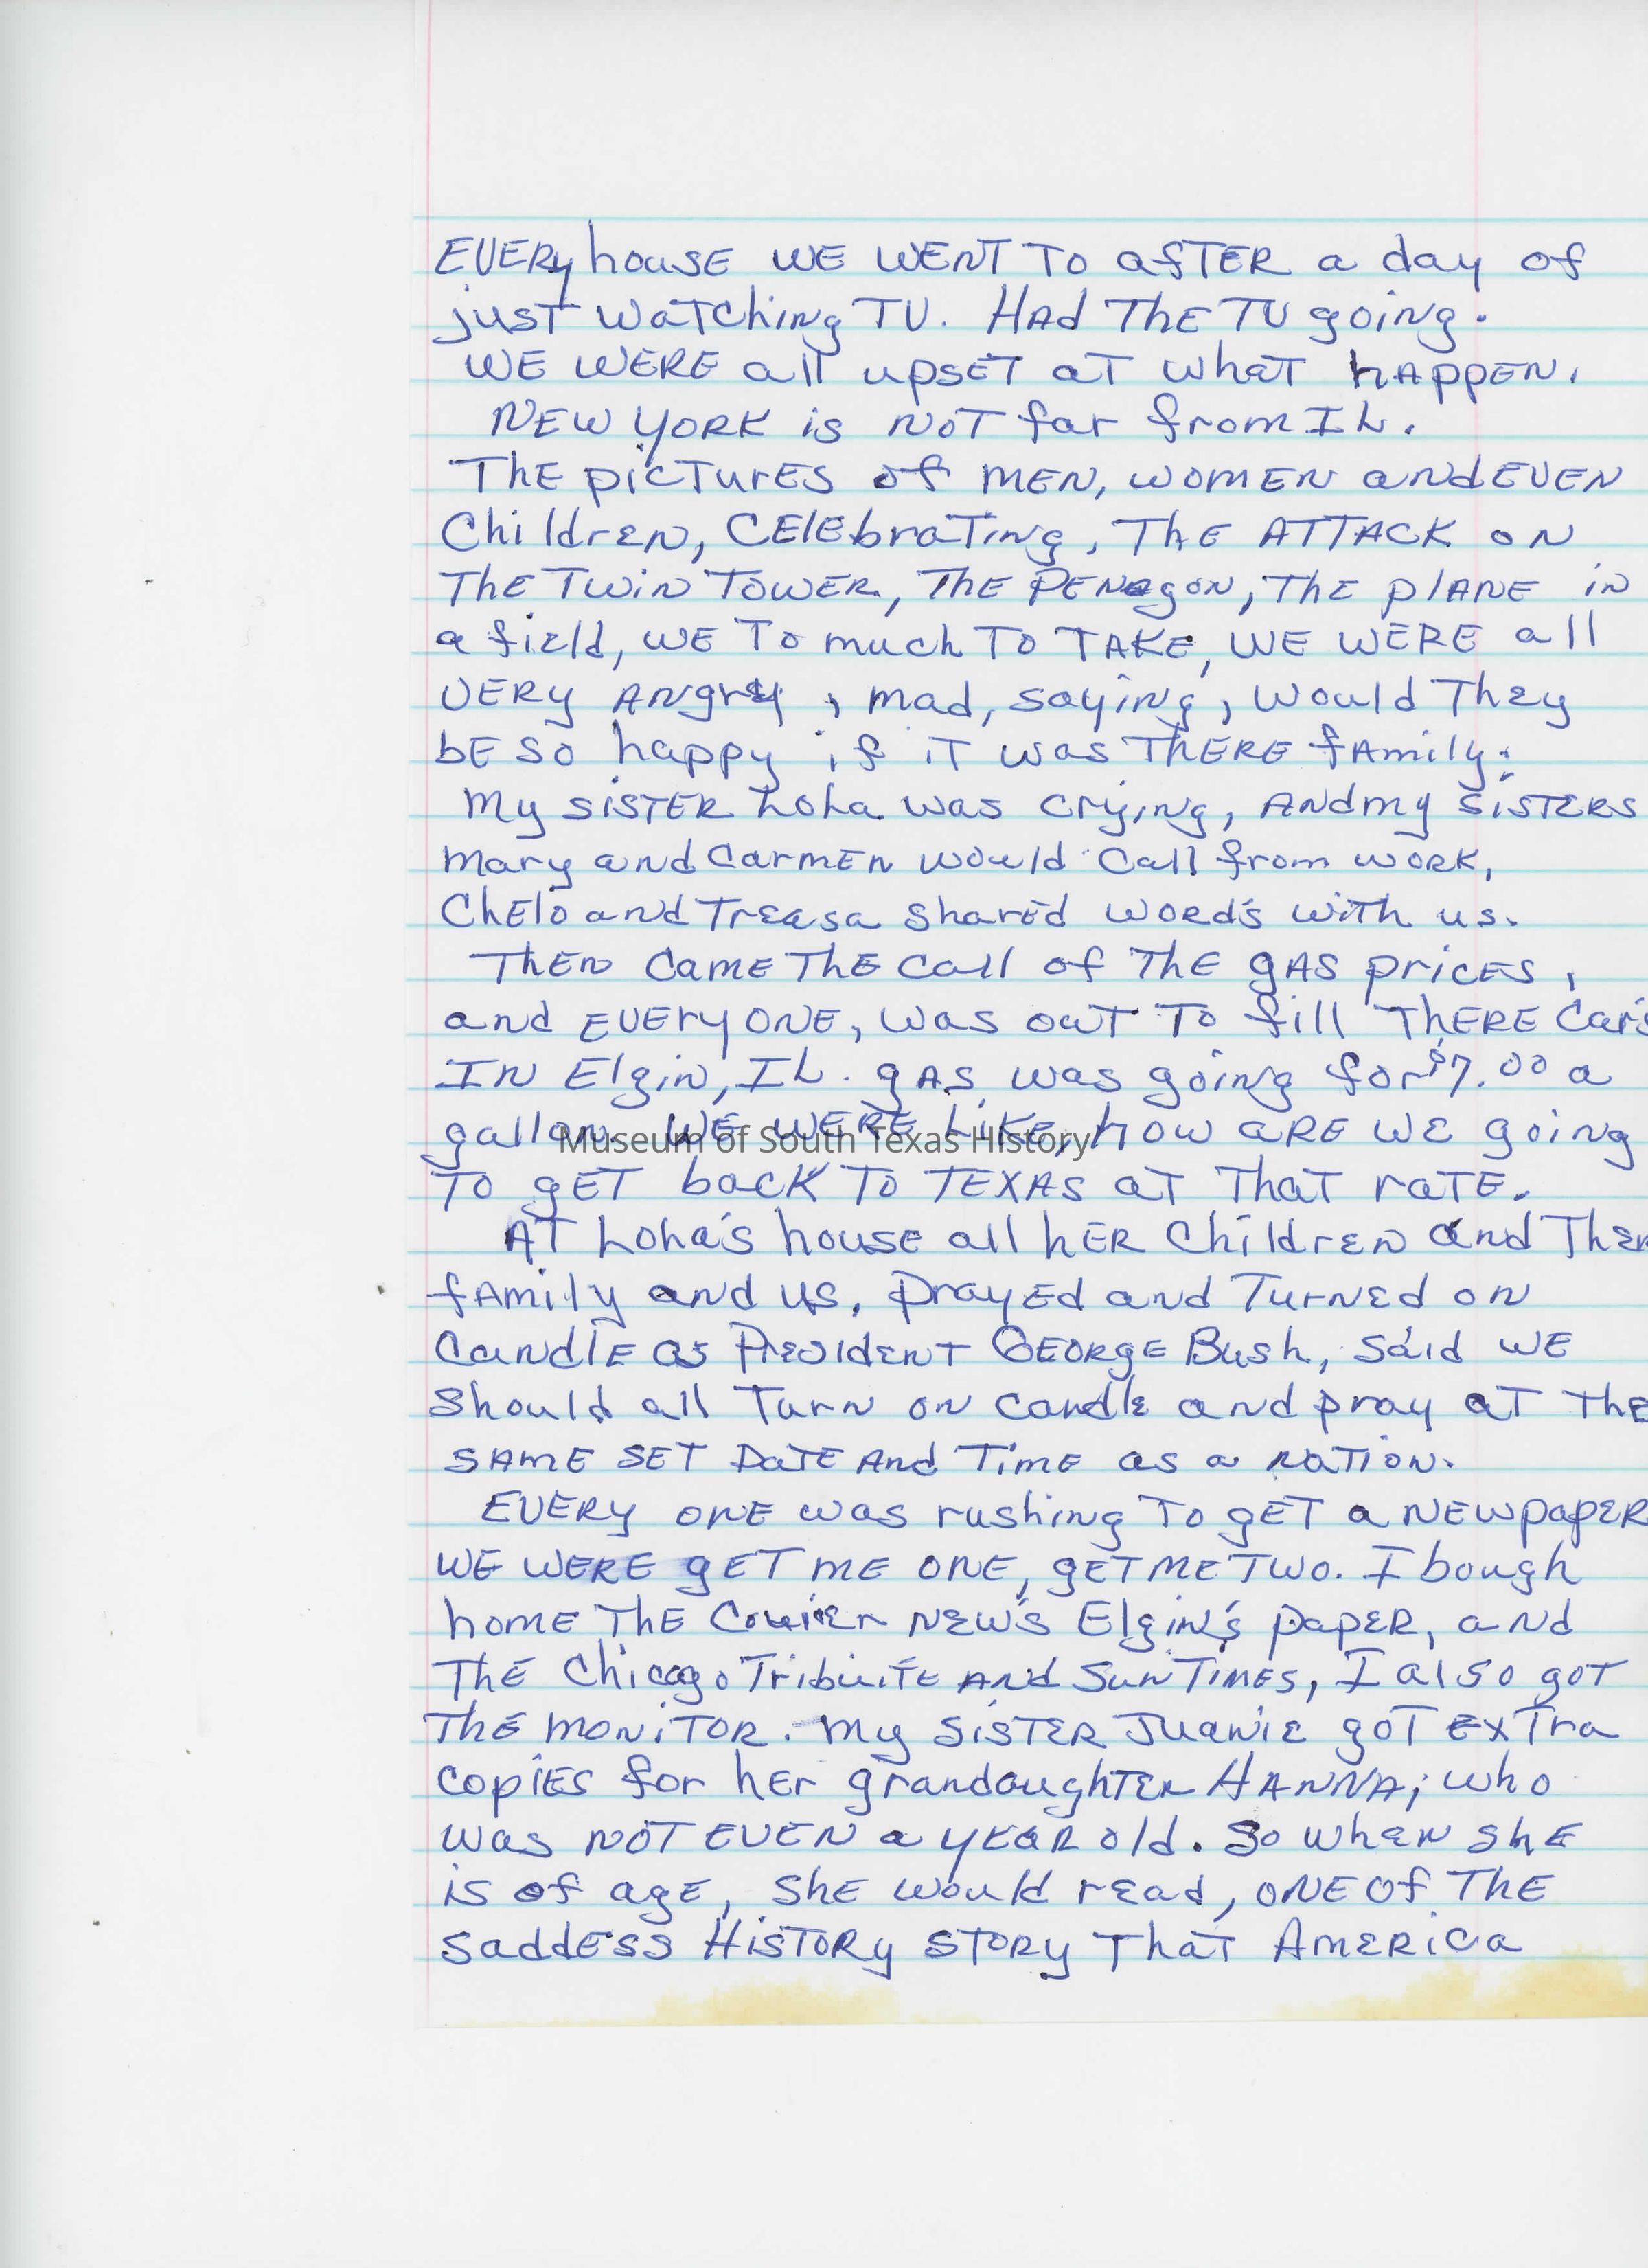 EVERY house WE WENT To afTER a day of
just watching TV. Had The TV going.
WE WERE all upset at what happen.
NEW YORK is NOT far from IL.
The pictures of MEN, WOMEN and EVEN
Children, Celebrating, The ATTACK ON
The Twin Tower, The Penagon, The plane in
a field, WE To much To TAKE, WE WERE all
VERY Angry, mad, saying, would They
be so happy if it was THERE family.
My sister Lola was crying, And my sisters
Mary and Carmen would call from work,
Chelo and Treasa shared word's with us.
Then came the call of the gas prices,
and everyone, was out to fill THERE Car's
In Elgin, IL. gas was going for $7.00 a
gallon. WE WERE Like, how are we going
Museum of South Texas History
To get back to Texas at that rate.
At Lola's house all her children and Their
family and us, prayed and Turned on
Candle as President George Bush, said WE
should all Turn on candle and pray at The
same set Date And Time as a nation.
EVERY ONE was rushing To get a Newpaper
WE WERE get me one, get me two. I bough
home The Courier New's Elgin's paper, and
The Chicago Tribuite And Sun Times, I also got
The Monitor. My sister Juanie got extra
copies for her grandaughter Hanna; who
was not even a year old. So when she
is of age, she would read, one of the
saddess History story That America